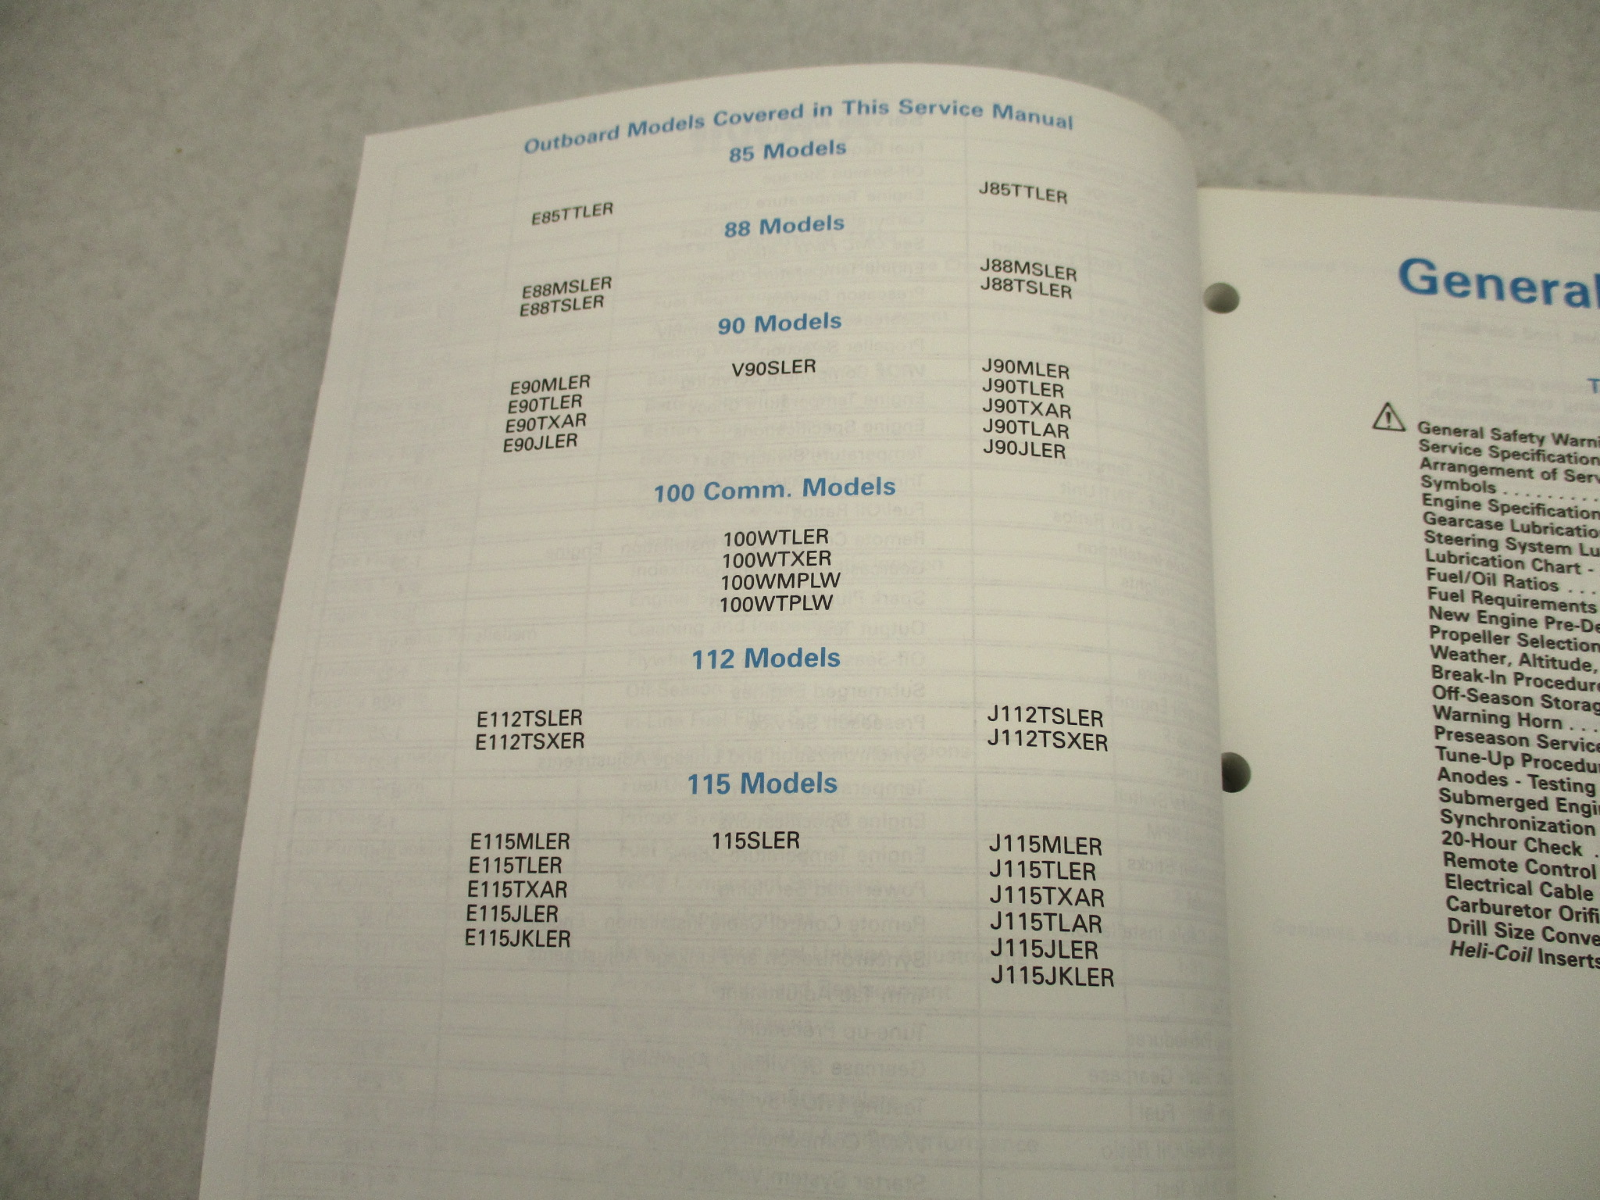 Outboard Models Covered in This Service Manual
85 Models
E85TTLER J85TTLER
88 Models
E88MSLER J88MSLER
E88TSLER J88TSLER
90 Models
E90MLER V90SLER J90MLER
E90TLER J90TLER
E90TXAR J90TXAR
E90JLER J90TLAR
J90JLER
100 Comm. Models
100WTLER
100WTXER
100WMPLW
100WTPLW
112 Models
E112TSLER J112TSLER
E112TSXER J112TSXER
115 Models
E115MLER 115SLER J115MLER
E115TLER J115TLER
E115TXAR J115TXAR
E115JLER J115TLAR
E115JKLER J115JLER
J115JKLER
General
General Safety Warni
Service Specification
Arrangement of Serv
Symbols . . . . . . . . .
Engine Specification
Gearcase Lubricatio
Steering System Lu
Lubrication Chart -
Fuel/Oil Ratios . . .
Fuel Requirements
New Engine Pre-De
Propeller Selection
Weather, Altitude,
Break-In Procedure
Off-Season Storag
Warning Horn . . .
Preseason Service
Tune-Up Procedu
Anodes - Testing
Submerged Engi
Synchronization
20-Hour Check .
Remote Control
Electrical Cable
Carburetor Orifi
Drill Size Conve
Heli-Coil Inserts